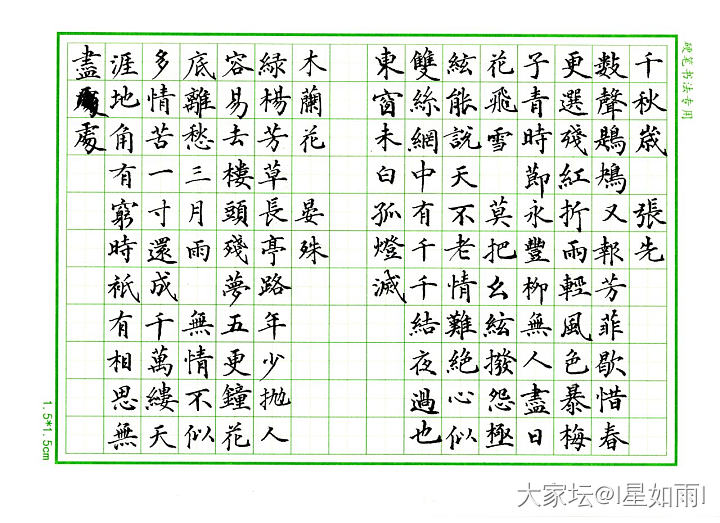 硬笔书法专用
千秋歲 張先
數聲鶗鴂又報芳菲歇惜春
更選殘紅折雨輕風色暴梅
子青時節永豐柳無人盡日
花飛雪 莫把幺絃撥怨極
絃能說天不老情難絕心似
雙絲網中有千千結夜過也
東窗未白孤燈滅
木蘭花 晏殊
綠楊芳草長亭路年少拋人
容易去樓頭殘夢五更鐘花
底離愁三月雨 無情不似
多情苦一寸還成千萬縷天
涯地角有窮時衹有相思無
盡處
1.5*1.5cm
大家坛@I星如雨I